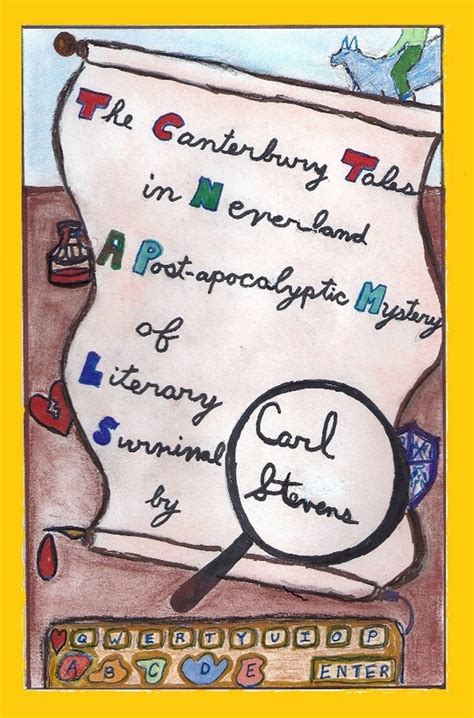 The Canterbury Tales
in Neverland
A Post-apocalyptic Mystery
of
Literary
Survival
by
Carl
Stevens
Q W E R T Y U I O P
A B C D E ENTER